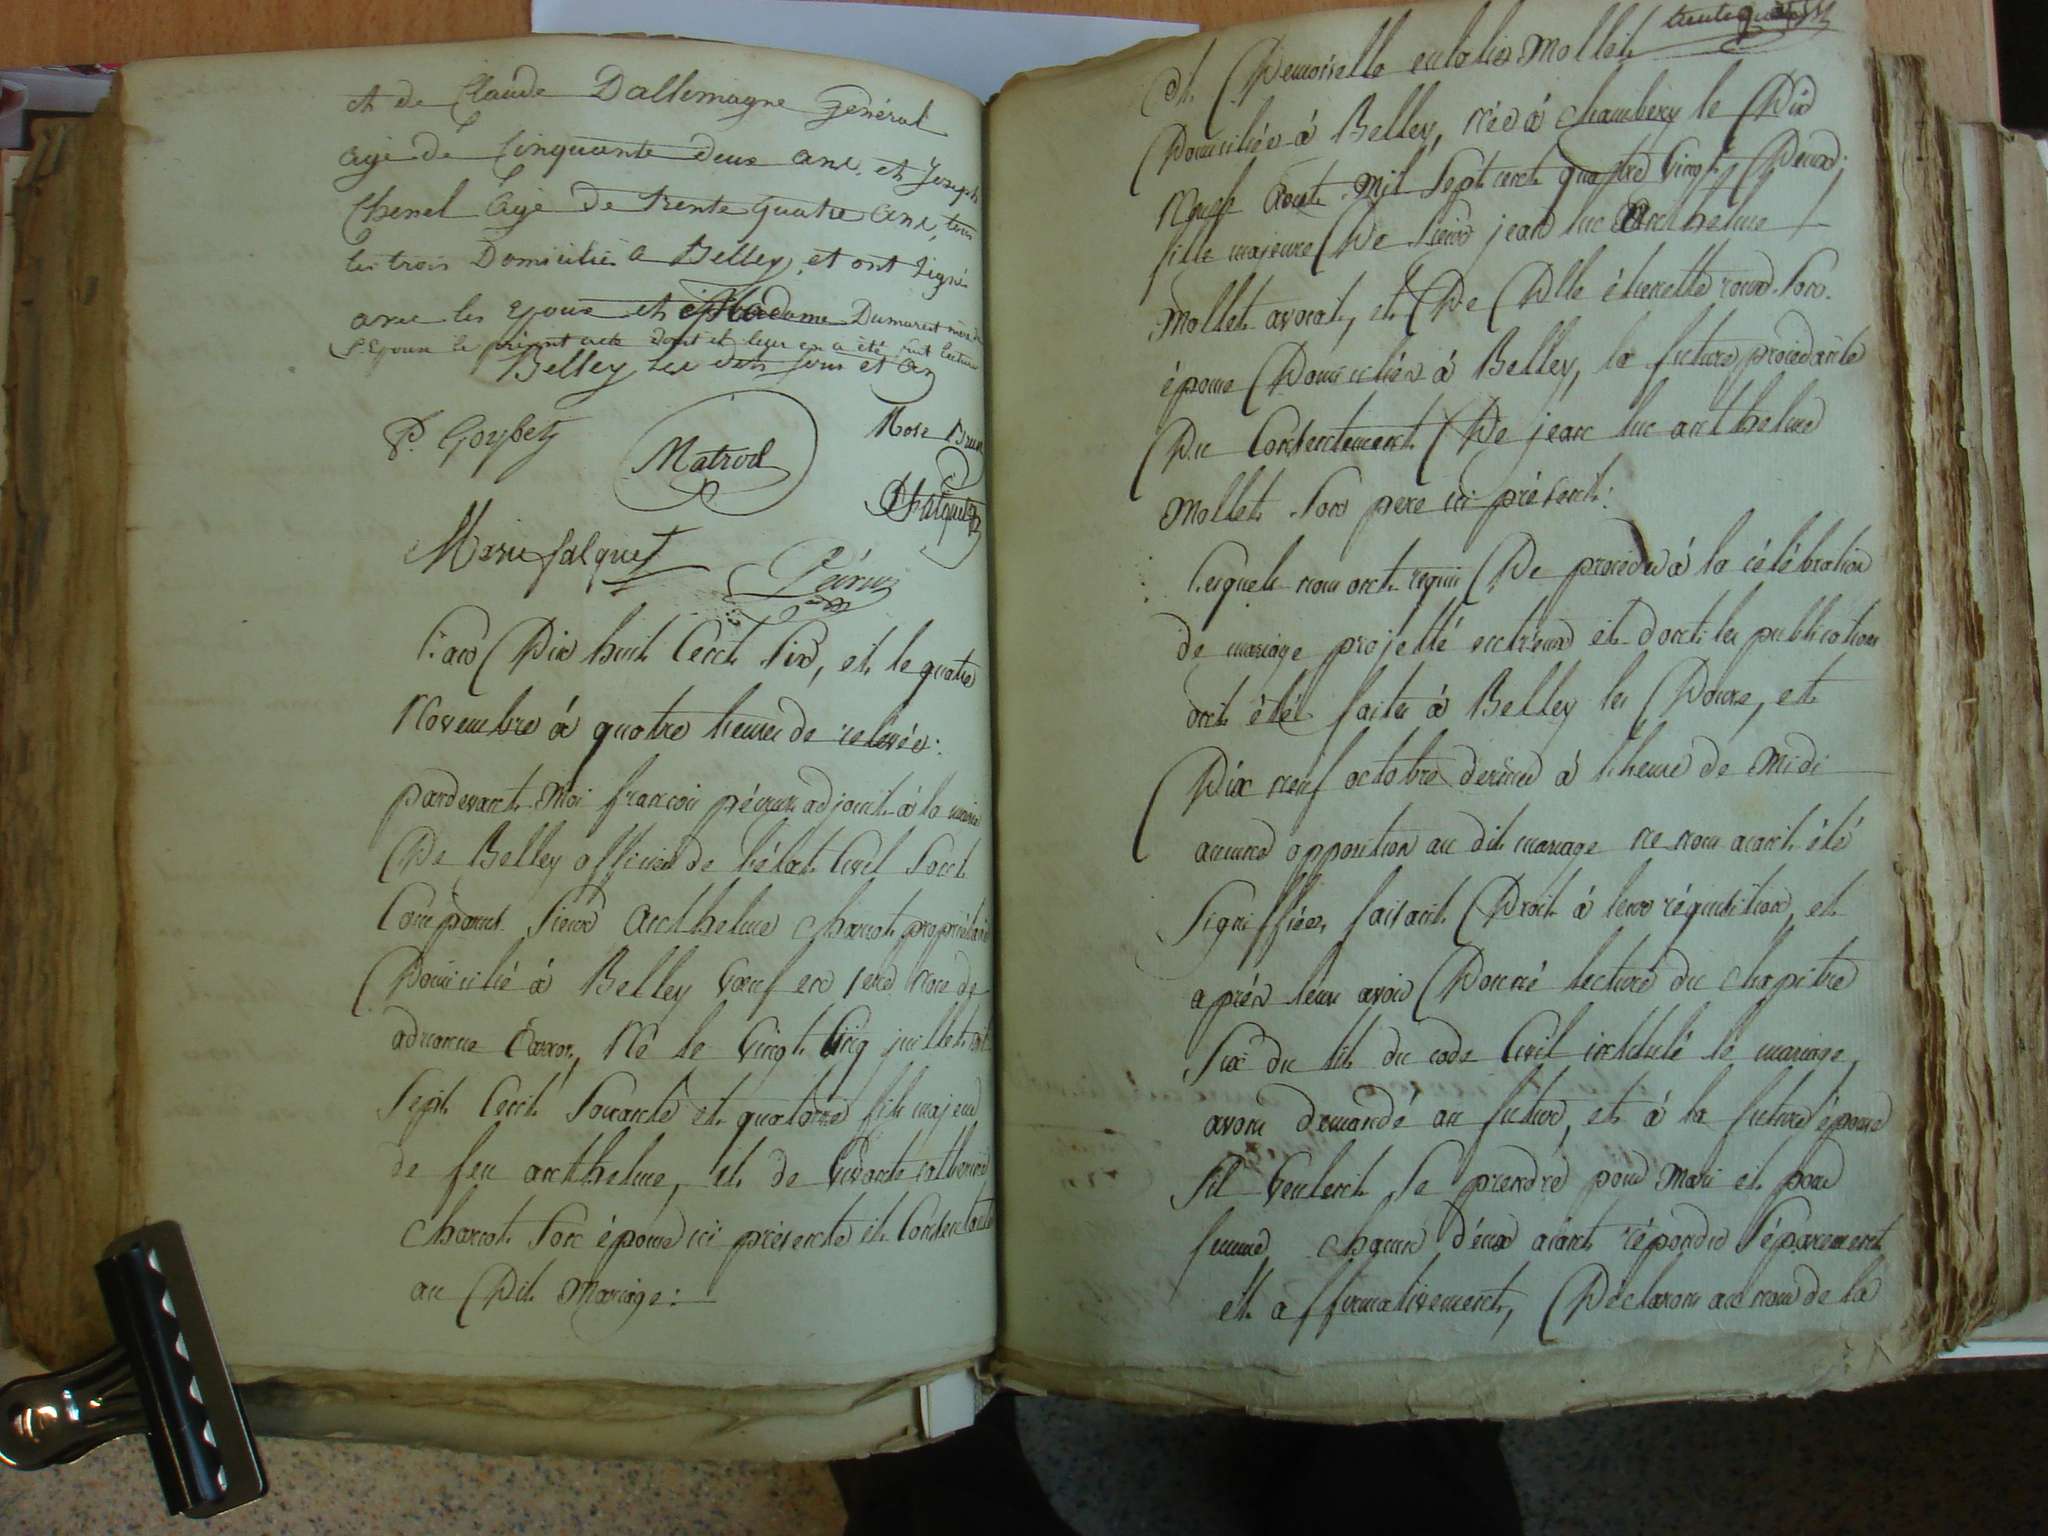 et de Claude Dallemagne général
agé de Cinquante deux ans, et Joseph
Chenel agé de trente quatre ans, tous
les trois Domiciliés a Belley, et ont signé
avec les Epoux et Madame Dumarest mère de
l'Epoux le présent acte dont et leur en a été fait lecture
Belley les dits jour et an
P. Goybet
Matrod
Falquet
Marie falquet
Péruz
L'an Dix huit Cent Six, et le quatre
Novembre à quatre heures de relevée:
pardevant Moi francois adjoint à la mairie
De Belley officier de l'état Civil Sont
Comparus Sieur anthelme Charcot propriétaire
Domicilié à Belley Vœuf en 1eres Noce de
Né le Vingt Cinq juillet
Sept Cent Soixante et quatorze fils majeur
de feu anthelme, et de Vivante catherine
Charcot Son épouse ici présente et Consentante
au Dit Mariage:
trente quatre
Et Demoiselle eulalie Mollet
Domiciliée à Belley, Née à Chambéry le Dix
Neuf Aout Mil Sept cent quatre Vingt Deux;
fille majeure De Sieur jean luc Anthelme
Mollet avocat, et De Dlle étiennette roux Son
épouse Domiciliés à Belley, la future procédante
Du Consentement De jean luc anthelme
Mollet Son pere ici présent:
Lesquels nous ont requis De procéder à la célébration
de mariage projetté entr'eux et dont les publications
ont été faites à Belley les Douze, et
Dix neuf octobre dernier à l'heure de Midi
aucune opposition au dit mariage ne nous aiant été
Signiffiée, faisant Droit à leur réquisition, et
après leur avoir Donné lecture du Chapitre
Six du tit. du code Civil intitulé le mariage,
avons demandé au futur, et à la future épouse
S'il Veulent Se prendre pour Mari et pour
femme, chacun d'eux aiant répondu Séparement
et affirmativement, Déclarons au nom de la